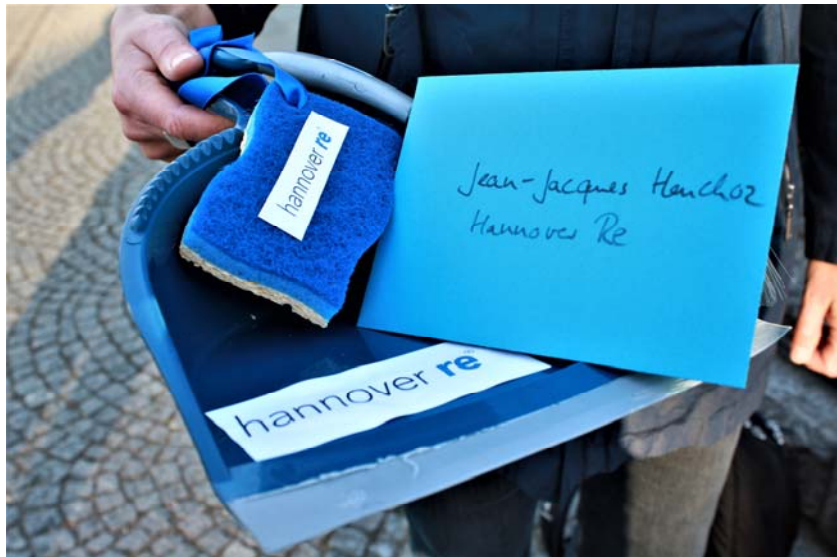 hannover re
Jean-Jacques Henchoz
Hannover Re
hannover re